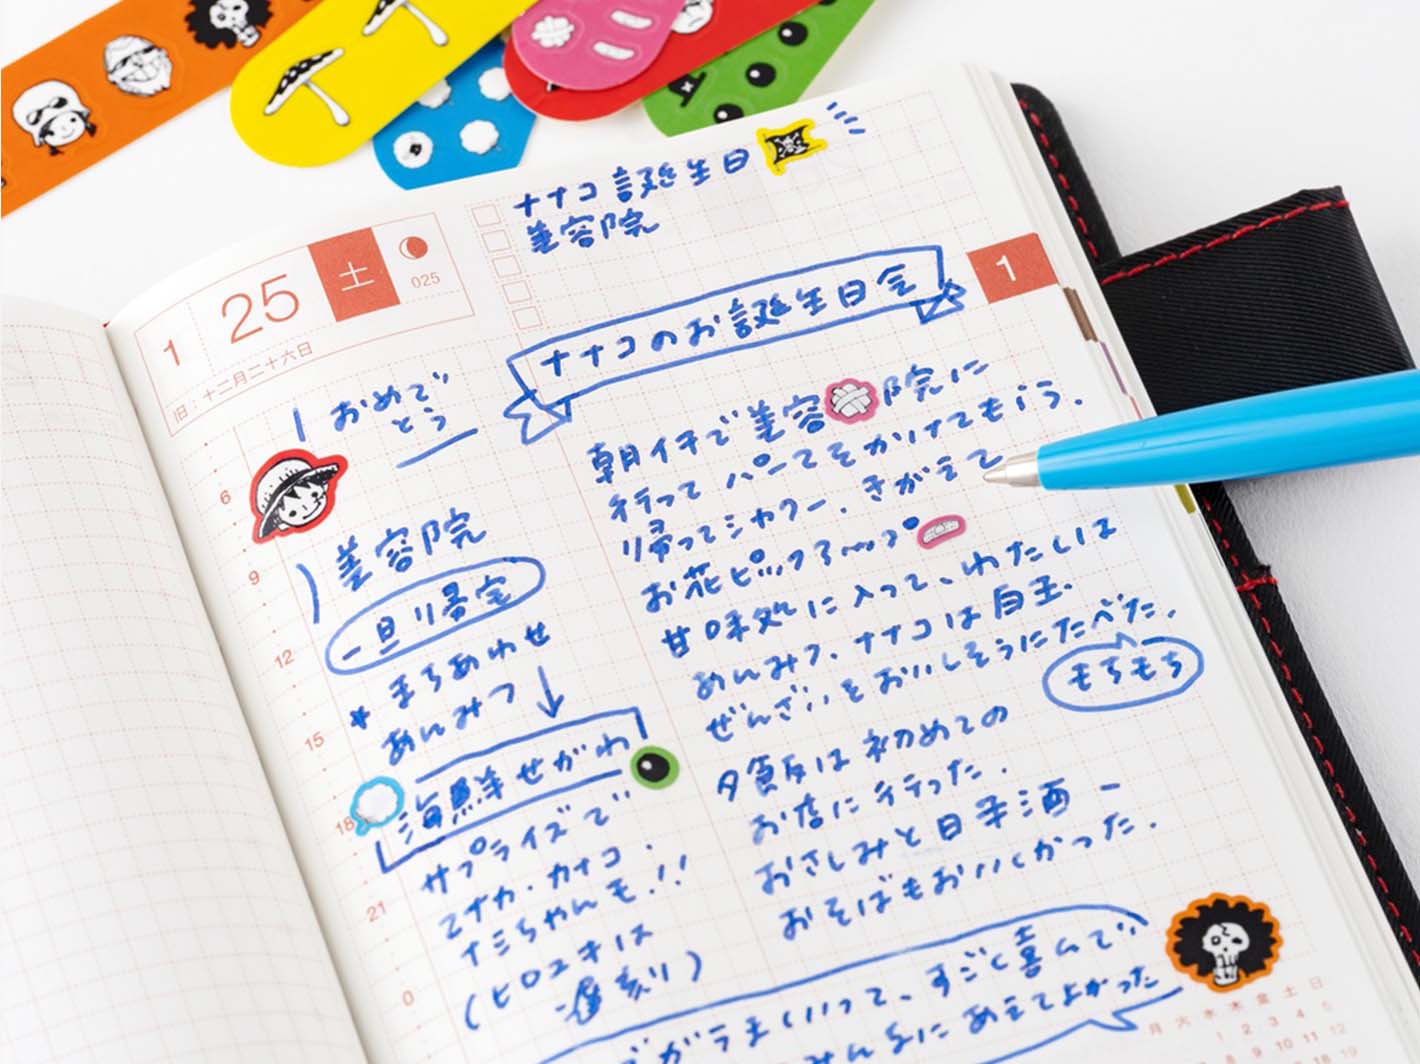 ナナコ誕生日
美容院
1 25 土
025
旧:十二月二十六日
1
ナナコのお誕生日会
おめで
とう
6
9
12
15
18
21
0
美容院
一旦帰宅
* まちあわせ
あんみつ
海鮮せがわ
サプライズで
マナカ・カナコ・
ナミちゃんも!!
(ヒロユキは
遅刻)
朝イチで美容院に
行ってパーマをかけてもらう.
帰ってシャワー.きがえて
お花ピックアップ
甘味処に入って、わたしは
あんみつ、ナナコは白玉
ぜんざいをおいしそうにたべた.
もちもち
夕飯は初めての
お店に行った.
おさしみと日本酒ー
おそばもおいしかった.
がうまくいって、すごく喜んで
みんなにあえてよかった
月 火 水 木 金 土 日
1 2 3 4 5